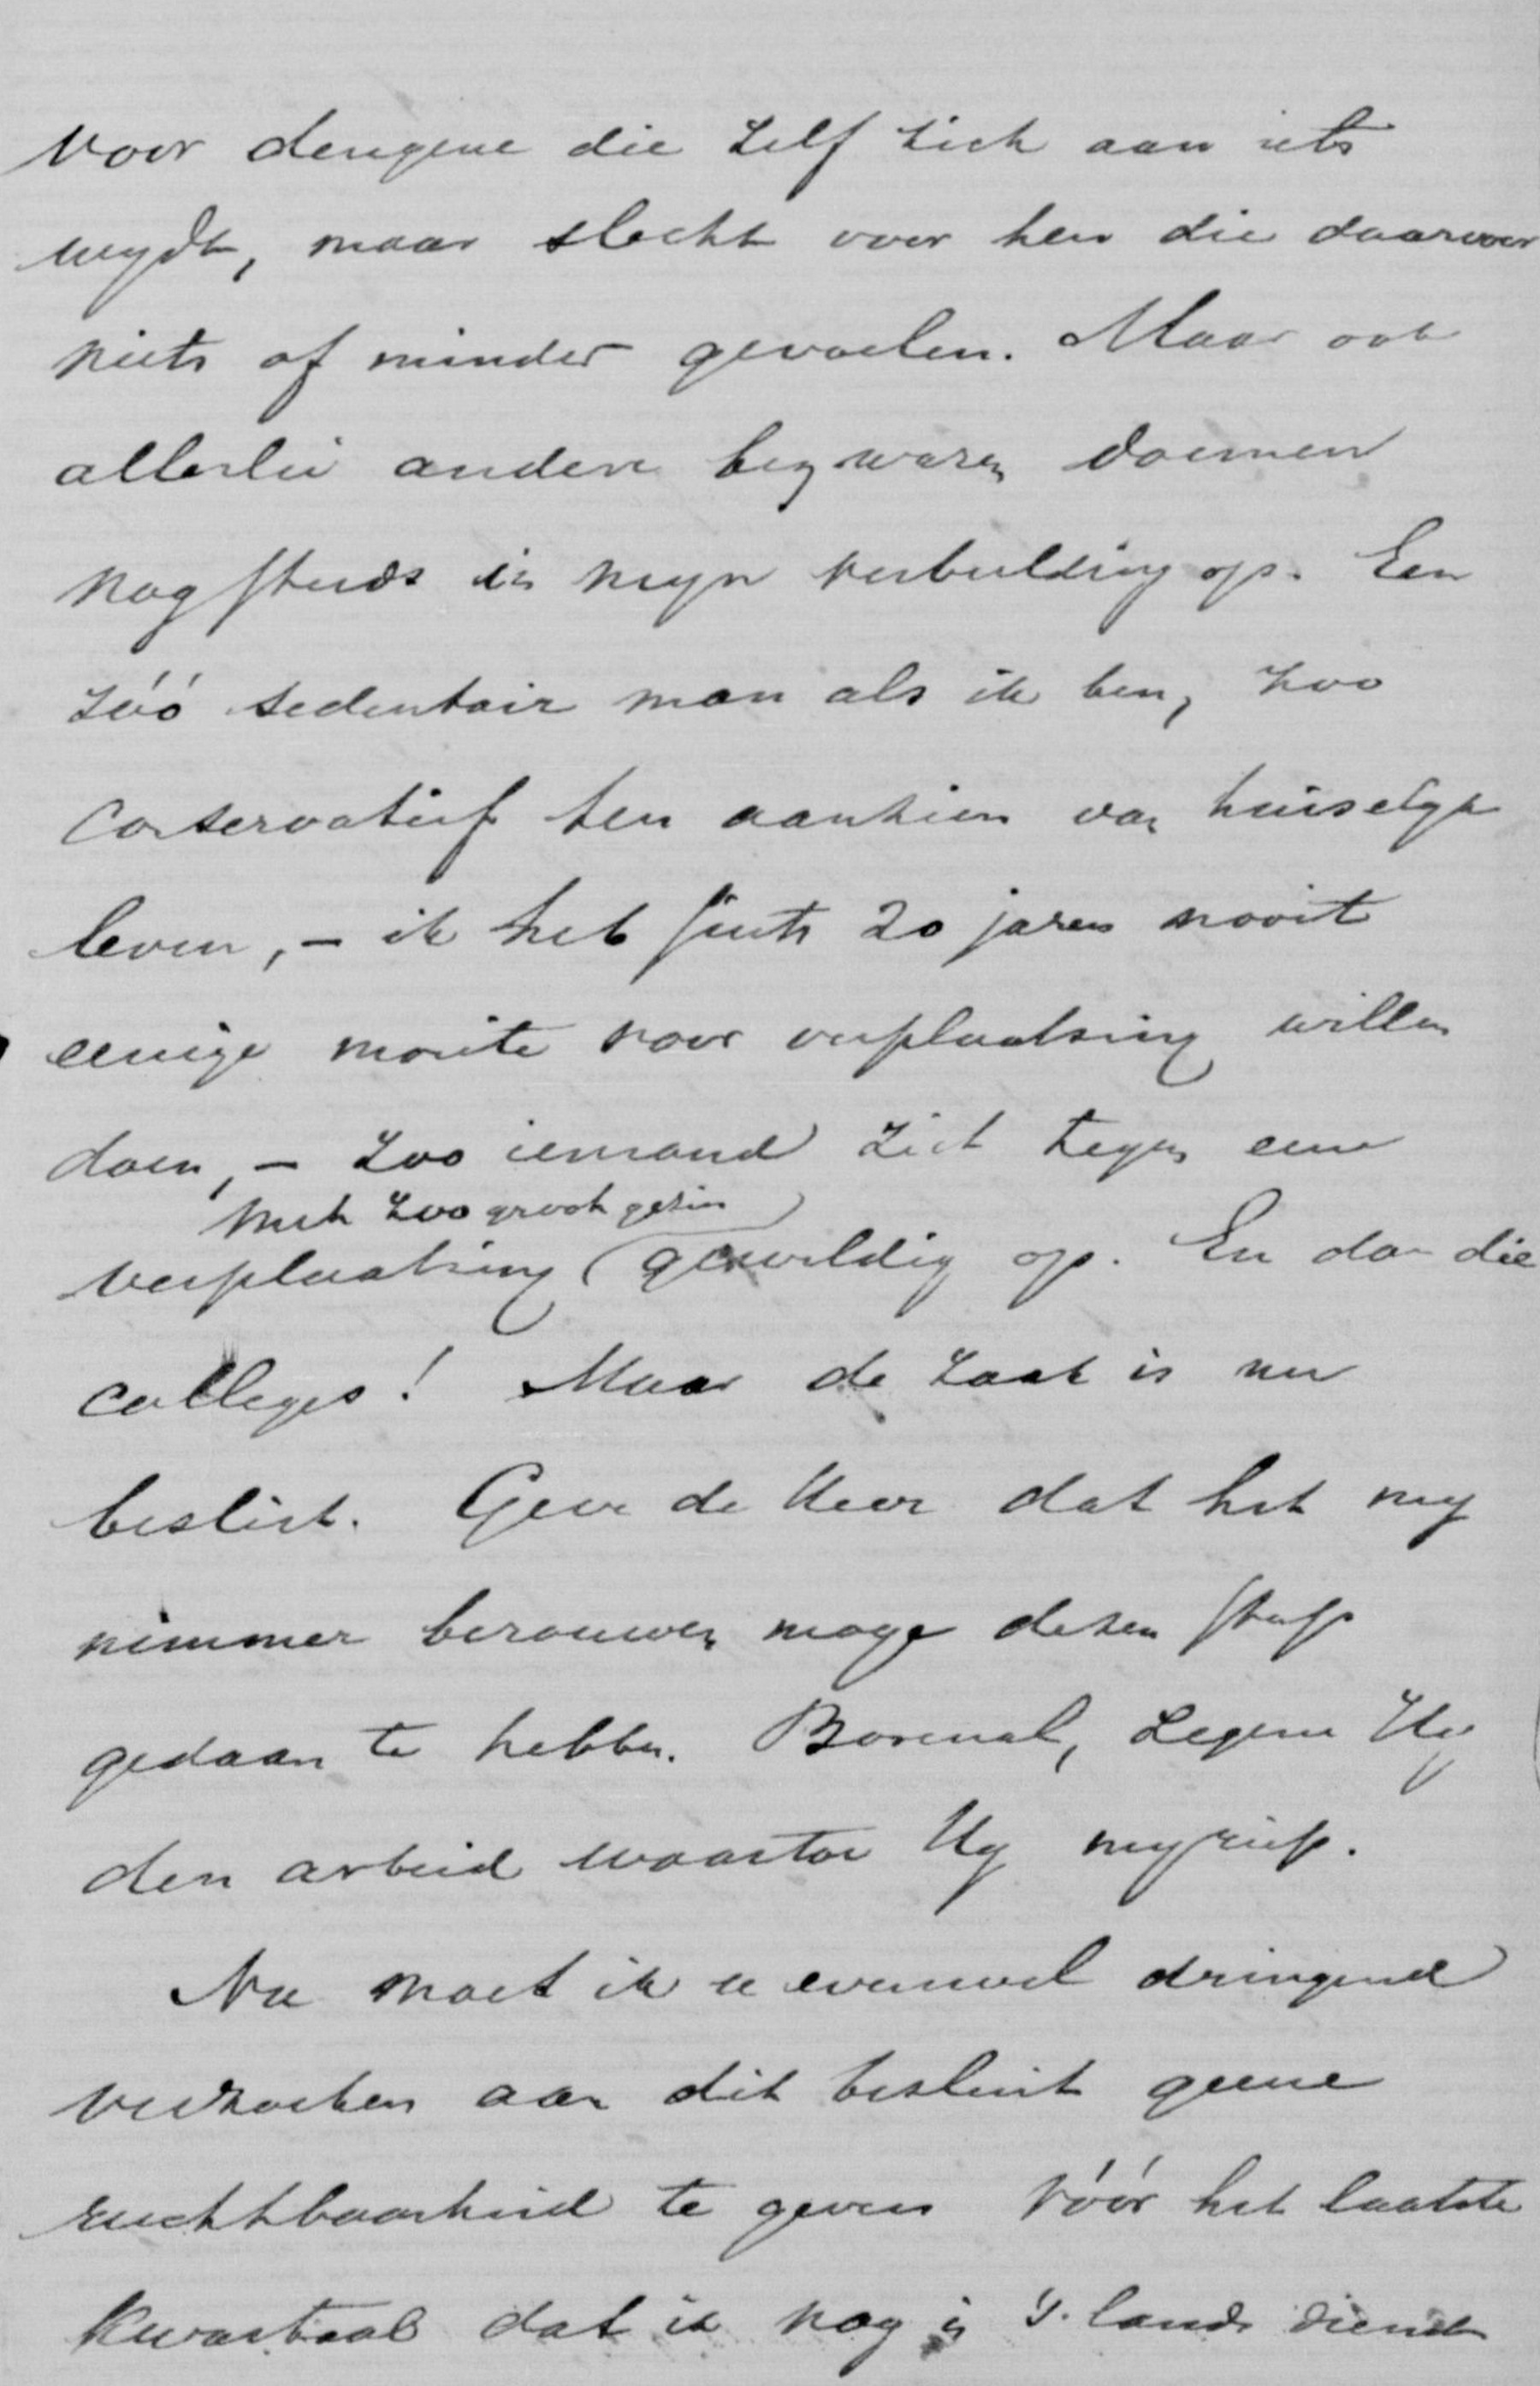 voor dengene die zelf zich aan iets
wydt, maar slecht voor hen die daarvoor
niets of minder gevoelen. Maar ook
allerlei andere bezwaren doemen
nog steeds in myn verbeelding op. Een
zóó sedentair man als ik ben, zoo
conservatief ten aanzien van huiselyk
leven, – ik heb sints 20 jaren nooit
eenige moeite voor verplaatsing willen
doen, – zoo iemand ziet tegen eene
met zoo groot gezin
verplaatsing geweldig op. En dan die
colleges! Maar de zaak is nu
beslist. Geve de Heer dat het my
nimmer berouwen moge dezen stap
gedaan te hebben. Bovenal, zegene Hy
den arbeid waartoe Hy my riep.
Nu moet ik u evenwel dringend
verzoeken aan dit besluit geene
ruchtbaarheid te geven vóór het laatste
kwartaal dat ik nog in 's lands dienst